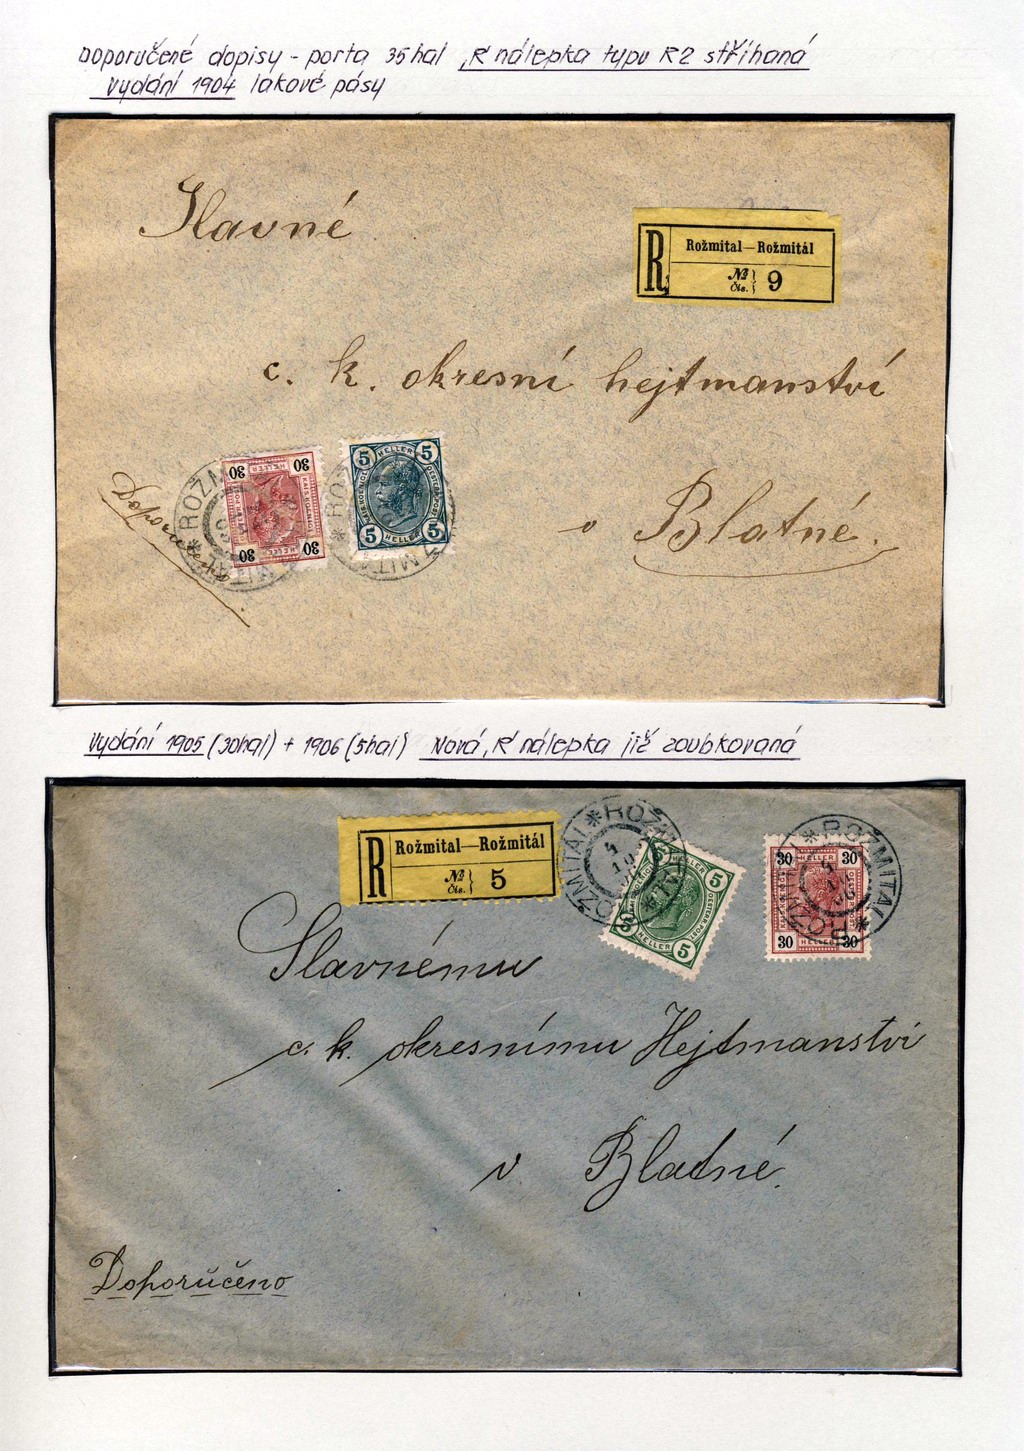 Doporučené dopisy - porta 35hal "R" nálepka typu R2 stříhaná
Vydání 1904 lakové pásy
Slavné
R
Rožmital—Rožmitál
№
Čis. 9
c. k. okresní hejtmanství
30 HELLER 30
30 HELLER 30
5 HELLER 5
5 HELLER 5
ROŽMITAL
ROŽMITAL
Doporučeno
v Blatné.
Vydání 1905 (30hal) + 1906 (5hal) Nová "R" nálepka již zoubkovaná
R
Rožmital—Rožmitál
№
Čis. 5
ROŽMITAL
ROŽMITAL
5 HELLER 5
5 HELLER 5
30 HELLER 30
30 HELLER 30
ROŽMITAL
ROŽMITAL
Slavnému
c. k. okresnímu Hejtmanství
v Blatné.
Doporučeno